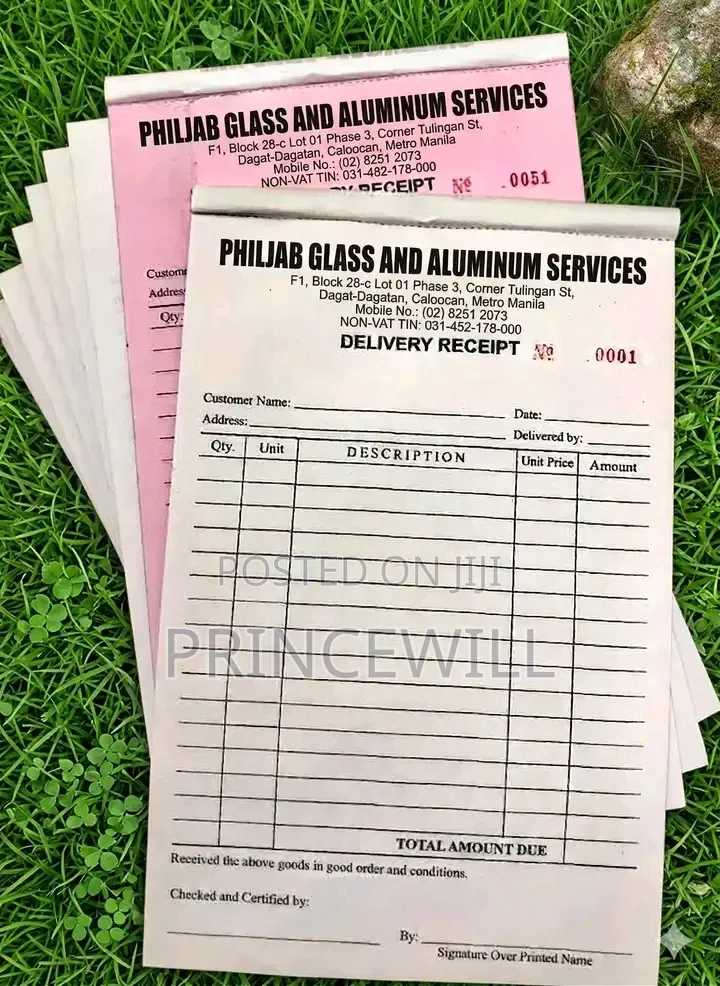 PHILJAB GLASS AND ALUMINUM SERVICES
F1, Block 28-c Lot 01 Phase 3, Corner Tulingan St,
Dagat-Dagatan, Caloocan, Metro Manila
Mobile No.: (02) 8251 2073
NON-VAT TIN: 031-482-178-000
RY RECEIPT Nº .0051
Custome
Address
Qty.
PHILJAB GLASS AND ALUMINUM SERVICES
F1, Block 28-c Lot 01 Phase 3, Corner Tulingan St,
Dagat-Dagatan, Caloocan, Metro Manila
Mobile No.: (02) 8251 2073
NON-VAT TIN: 031-452-178-000
DELIVERY RECEIPT Nº .0001
Customer Name: Date:
Address: Delivered by:
Qty. Unit DESCRIPTION Unit Price Amount
POSTED ON JIJI
PRINCEWILL
TOTAL AMOUNT DUE
Received the above goods in good order and conditions.
Checked and Certified by:
By:
Signature Over Printed Name